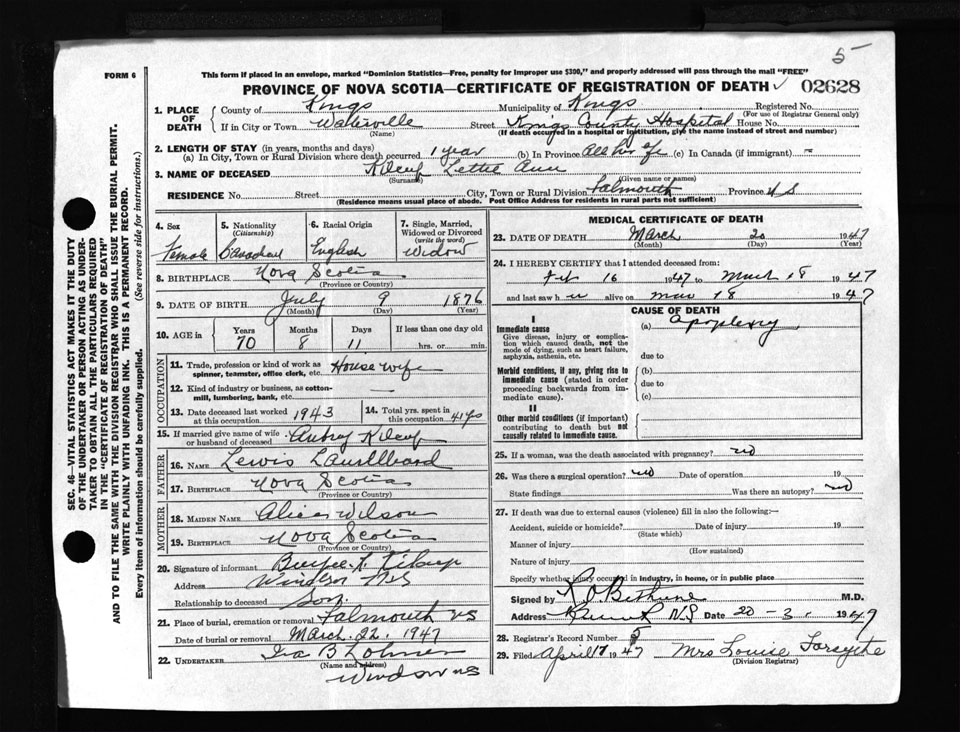 5
FORM 6
This form if placed in an envelope, marked "Dominion Statistics—Free, penalty for improper use $300," and properly addressed will pass through the mail "FREE"
PROVINCE OF NOVA SCOTIA—CERTIFICATE OF REGISTRATION OF DEATH ✓ 02628
1. PLACE OF DEATH County of Kings Municipality of Kings Registered No.
(For use of Registrar General only)
If in City or Town Waterville Street Kings County Hospital House No.
(Name) (If death occurred in a hospital or institution, give the name instead of street and number)
2. LENGTH OF STAY (in years, months and days)
(a) In City, Town or Rural Division where death occurred 1 year (b) In Province All her life (c) In Canada (if immigrant) –
3. NAME OF DECEASED Kilcup Lettie Ann
(Surname) (Given name or names)
RESIDENCE No. Street City, Town or Rural Division Falmouth Province N S
(Residence means usual place of abode. Post Office Address for residents in rural parts not sufficient)
SEC. 46—VITAL STATISTICS ACT MAKES IT THE DUTY
OF THE UNDERTAKER OR PERSON ACTING AS UNDER-
TAKER TO OBTAIN ALL THE PARTICULARS REQUIRED
IN THE "CERTIFICATE OF REGISTRATION OF DEATH"
AND TO FILE THE SAME WITH THE DIVISION REGISTRAR WHO SHALL ISSUE THE BURIAL PERMIT.
WRITE PLAINLY WITH UNFADING INK. THIS IS A PERMANENT RECORD.
Every item of information should be carefully supplied. (See reverse side for instructions.)
4. Sex 5. Nationality (Citizenship) 6. Racial Origin 7. Single, Married, Widowed or Divorced (write the word)
Female Canadian English Widow
8. BIRTHPLACE Nova Scotia
(Province or Country)
9. DATE OF BIRTH July 9 1876
(Month) (Day) (Year)
10. AGE in Years Months Days If less than one day old
70 8 11 hrs. or min.
OCCUPATION
11. Trade, profession or kind of work as spinner, teamster, office clerk, etc. House wife
12. Kind of industry or business, as cotton-mill, lumbering, bank, etc. —
13. Date deceased last worked at this occupation 1943 14. Total yrs. spent in this occupation 41 yrs
15. If married give name of wife or husband of deceased Aubrey Kilcup
FATHER
16. NAME Lewis
17. BIRTHPLACE Nova Scotia
(Province or Country)
MOTHER
18. MAIDEN NAME Alice Wilson
19. BIRTHPLACE Nova Scotia
(Province or Country)
20. Signature of informant Burpee Kilcup
Address Windsor NS
Relationship to deceased Son
21. Place of burial, cremation or removal Falmouth NS
Date of burial or removal March. 22. 1947
22. UNDERTAKER Ira B Lohnes
(Name and address)
Windsor NS
MEDICAL CERTIFICATE OF DEATH
23. DATE OF DEATH March 20 1947
(Month) (Day) (Year)
24. I HEREBY CERTIFY that I attended deceased from:
Feb 16 1947 to March 18 1947
and last saw her alive on Mar 18 1947
CAUSE OF DEATH
I
Immediate cause (a) Apoplexy
Give disease, injury or complication which caused death, not the mode of dying, such as heart failure, asphyxia, asthenia, etc.
due to
Morbid conditions, if any, giving rise to immediate cause (stated in order proceeding backwards from immediate cause).
(b)
due to
(c)
II
Other morbid conditions (if important) contributing to death but not causally related to immediate cause.
25. If a woman, was the death associated with pregnancy? no
26. Was there a surgical operation? no Date of operation 19
State findings Was there an autopsy? no
27. If death was due to external causes (violence) fill in also the following:—
Accident, suicide or homicide? Date of injury 19
(State which)
Manner of injury
(How sustained)
Nature of injury
Specify whether injury occurred in industry, in home, or in public place
Signed by Bethune M.D.
Address N.S. Date 20 – 3. 1947
28. Registrar's Record Number 5
29. Filed April 17 1947 Mrs Louise Forsythe
(Division Registrar)